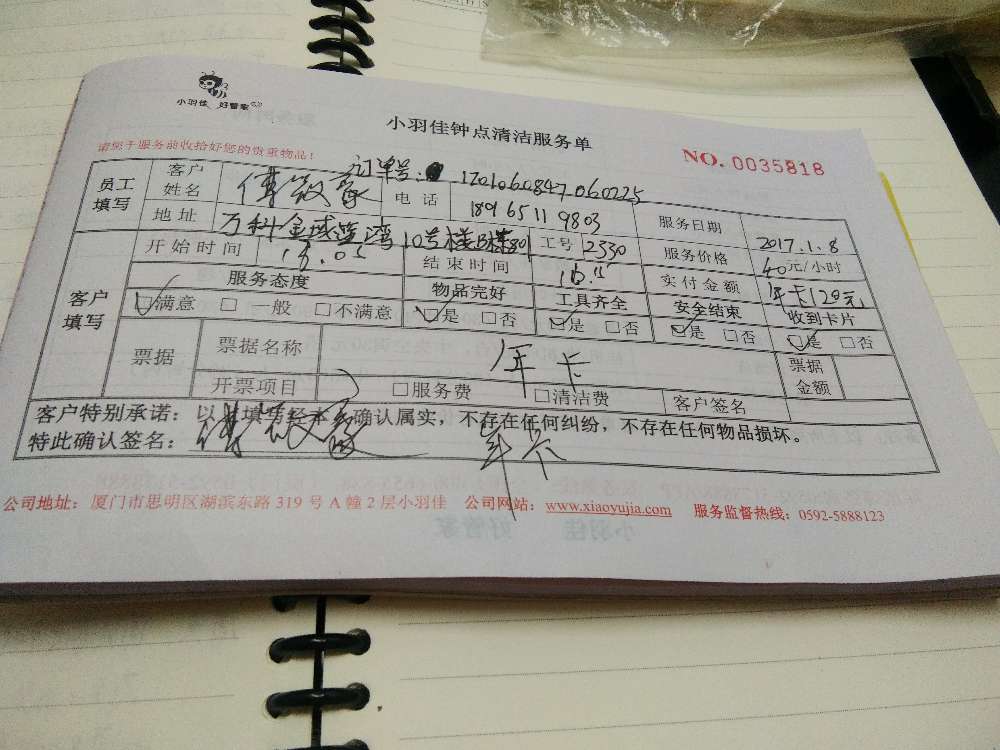 小羽佳 好管家
小羽佳钟点清洁服务单
请您于服务前收给好您的贵重物品！
NO. 0035818
订单号： 1701060847060225
员工填写 客户姓名 电话 18965119803 服务日期 2017.1.8
地址 万科金域蓝湾10号楼B梯801 工号 2330 服务价格 40元/小时
客户填写 开始时间 13.05 结束时间 16.15 实付金额 年卡120元
服务态度 物品完好 工具齐全 安全结束 收到卡片
☑满意 □一般 □不满意 ☑是 □否 ☑是 □否 ☑是 □否 ☑是 □否
票据 票据名称 年卡 票据金额
开票项目 □服务费 □清洁费 客户签名
客户特别承诺：以上填写经本人确认属实，不存在任何纠纷，不存在任何物品损坏。
特此确认签名： 年卡
公司地址：厦门市思明区湖滨东路 319 号 A 幢 2 层小羽佳 公司网站：www.xiaoyujia.com 服务监督热线：0592-5888123